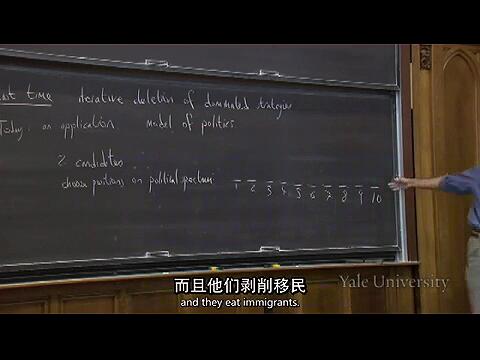 last time iterative deletion of dominated strategies
Today: an application model of politics
2 candidates
choose positions on political spectrum
1 2 3 4 5 6 7 8 9 10
Yale University
而且他们剥削移民
and they eat immigrants.